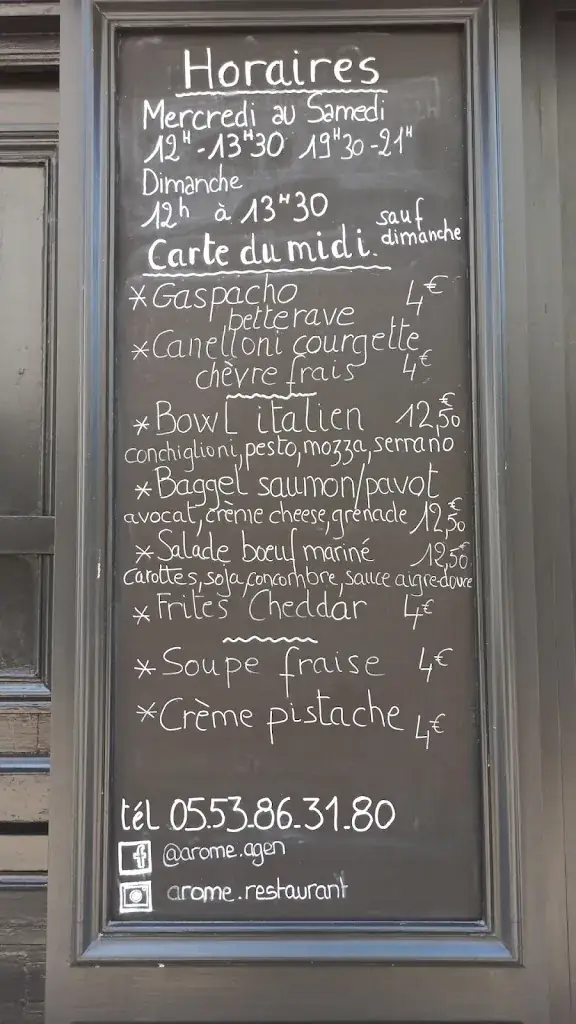 Horaires
Mercredi au Samedi
12H-13H30 19H30-21H
Dimanche
12h à 13H30
Carte du midi. sauf dimanche
*Gaspacho betterave 4€
*Canelloni courgette
chèvre frais 4€
*Bowl italien 12,50€
conchiglioni, pesto, mozza, serrano
*Baggel saumon/pavot
avocat, crème cheese, grenade 12,50€
*Salade boeuf mariné 12,50€
carottes, soja, concombre, sauce aigre-douce
*Frites Cheddar 4€
*Soupe fraise 4€
*Crème pistache 4€
tél 05.53.86.31.80
@arome.agen
arome.restaurant